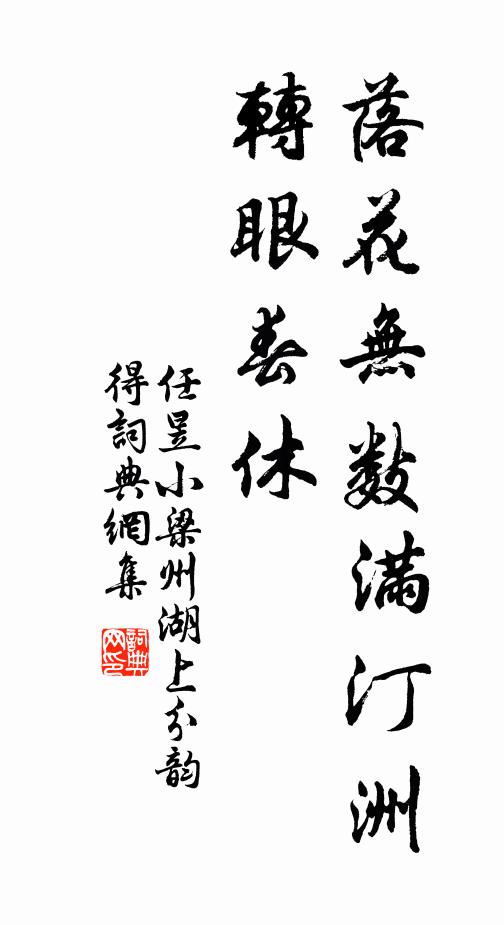 落花無數滿汀洲
轉眼春休
任昱小梁州湖上分韵
得詞典網集
詞典网印